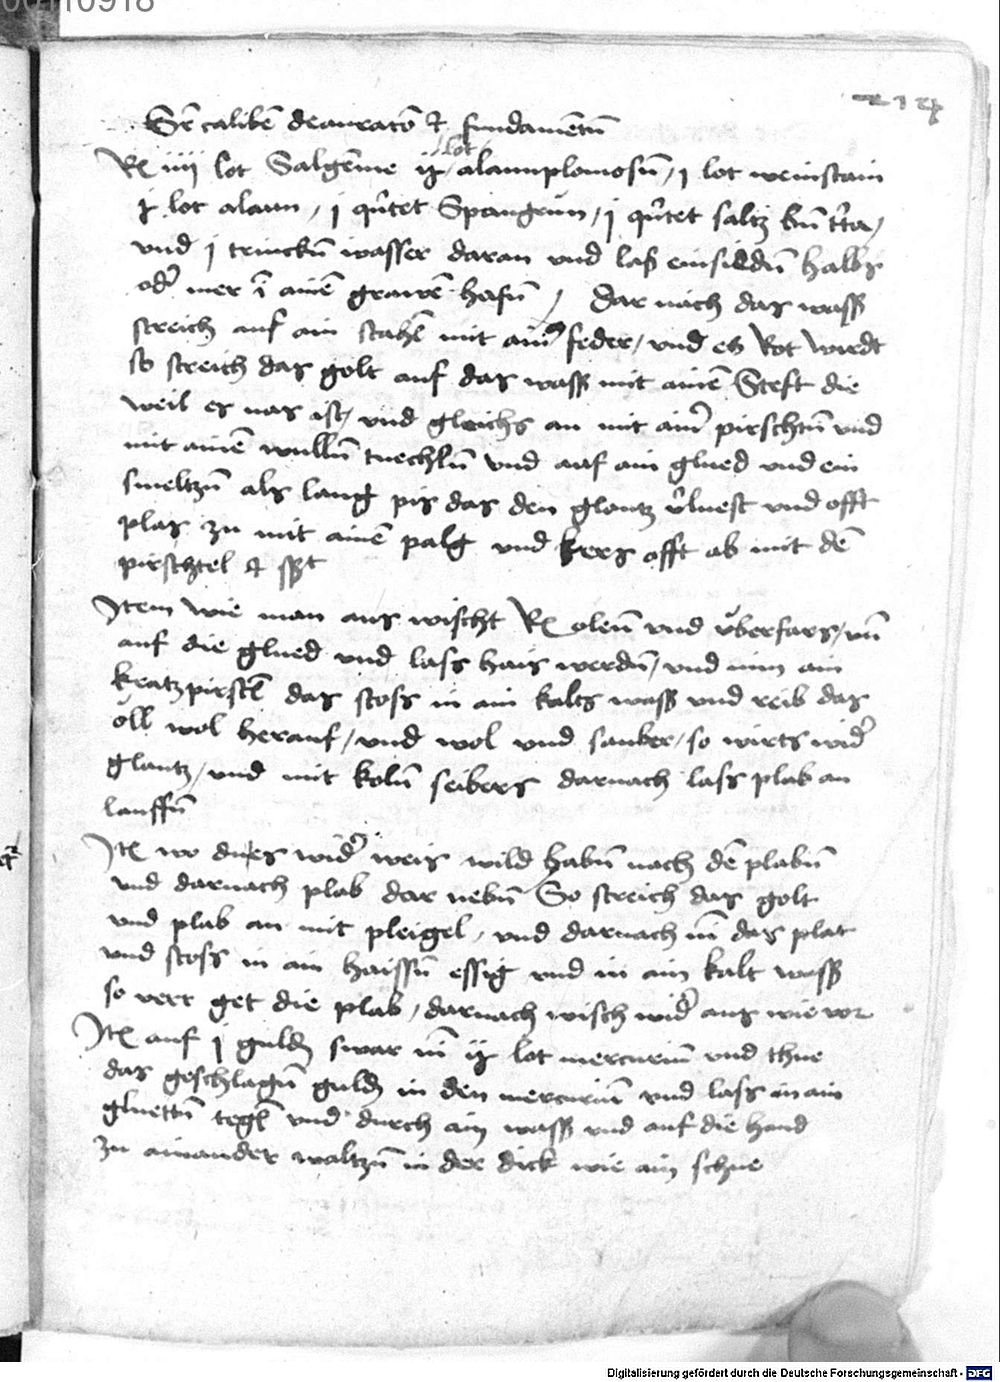 00110918
Sr̄ calibē deauratō et fundamētū
lot
Rx iiii lot Salgēme ii alaunplomosū / j lot weinstain
j lot alaun / j q̄rtet Spangrün / j q̄rtet saltz
vnd j trinckū wasser daran vnd laß einsiedū halbs
odr̄ mer ī ainē grawē hafū / dar nach das wass
streich auf ain stahl mit ainr̄ feder / vnd es Rot wirdt
so streich das golt auf das wass mit ainē Steft die
weil es nas ist / vnd gleichs an mit ainr̄ pirschtū vnd
mit ainē wullū tuechlū vnd auf ain glued vnd ein
smeltzū als lang pis das den glantz vr̄luest vnd offt
plas zu mit ainē palg vnd kers offt ab mit dē
pirschtel et
Item wie man aus wischt Rx oleū vnd vberfars / vn̄
auf die glued vnd lass hais werdū / vnd nim ain
kratzpirstl das stoss in ain kalts wass vnd reib das
oll wol herauf / vnd wol vnd sauber / so wirts widr̄
glantz / vnd mit kolū seibers darnach lass plab an
lauffū
Itē wo dues widr̄ weis wild habū nach dē plabū
vnd darnach plab dar nebū So streich das golt
vnd plab an mit pleigel / vnd darnach nī das plat
vnd stoss in ain haissū essig vnd in ain kalt wass
so vert get die plab / darnach wisch widr̄ aus wie vor
Itē auf j guldū swar nī ii lot mercuriū vnd thue
das geschlagū guldū in den mercuriū vnd lass in ain
gluettū tegl vnd durch ain wass vnd auf die hand
zu ainander waltzū in der dick wie ain schne
Digitalisierung gefördert durch die Deutsche Forschungsgemeinschaft - DFG